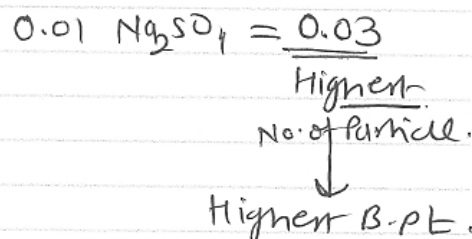 0.01 Na2SO4 = 0.03
Highest
No. of Particle.
Highest B.pt.